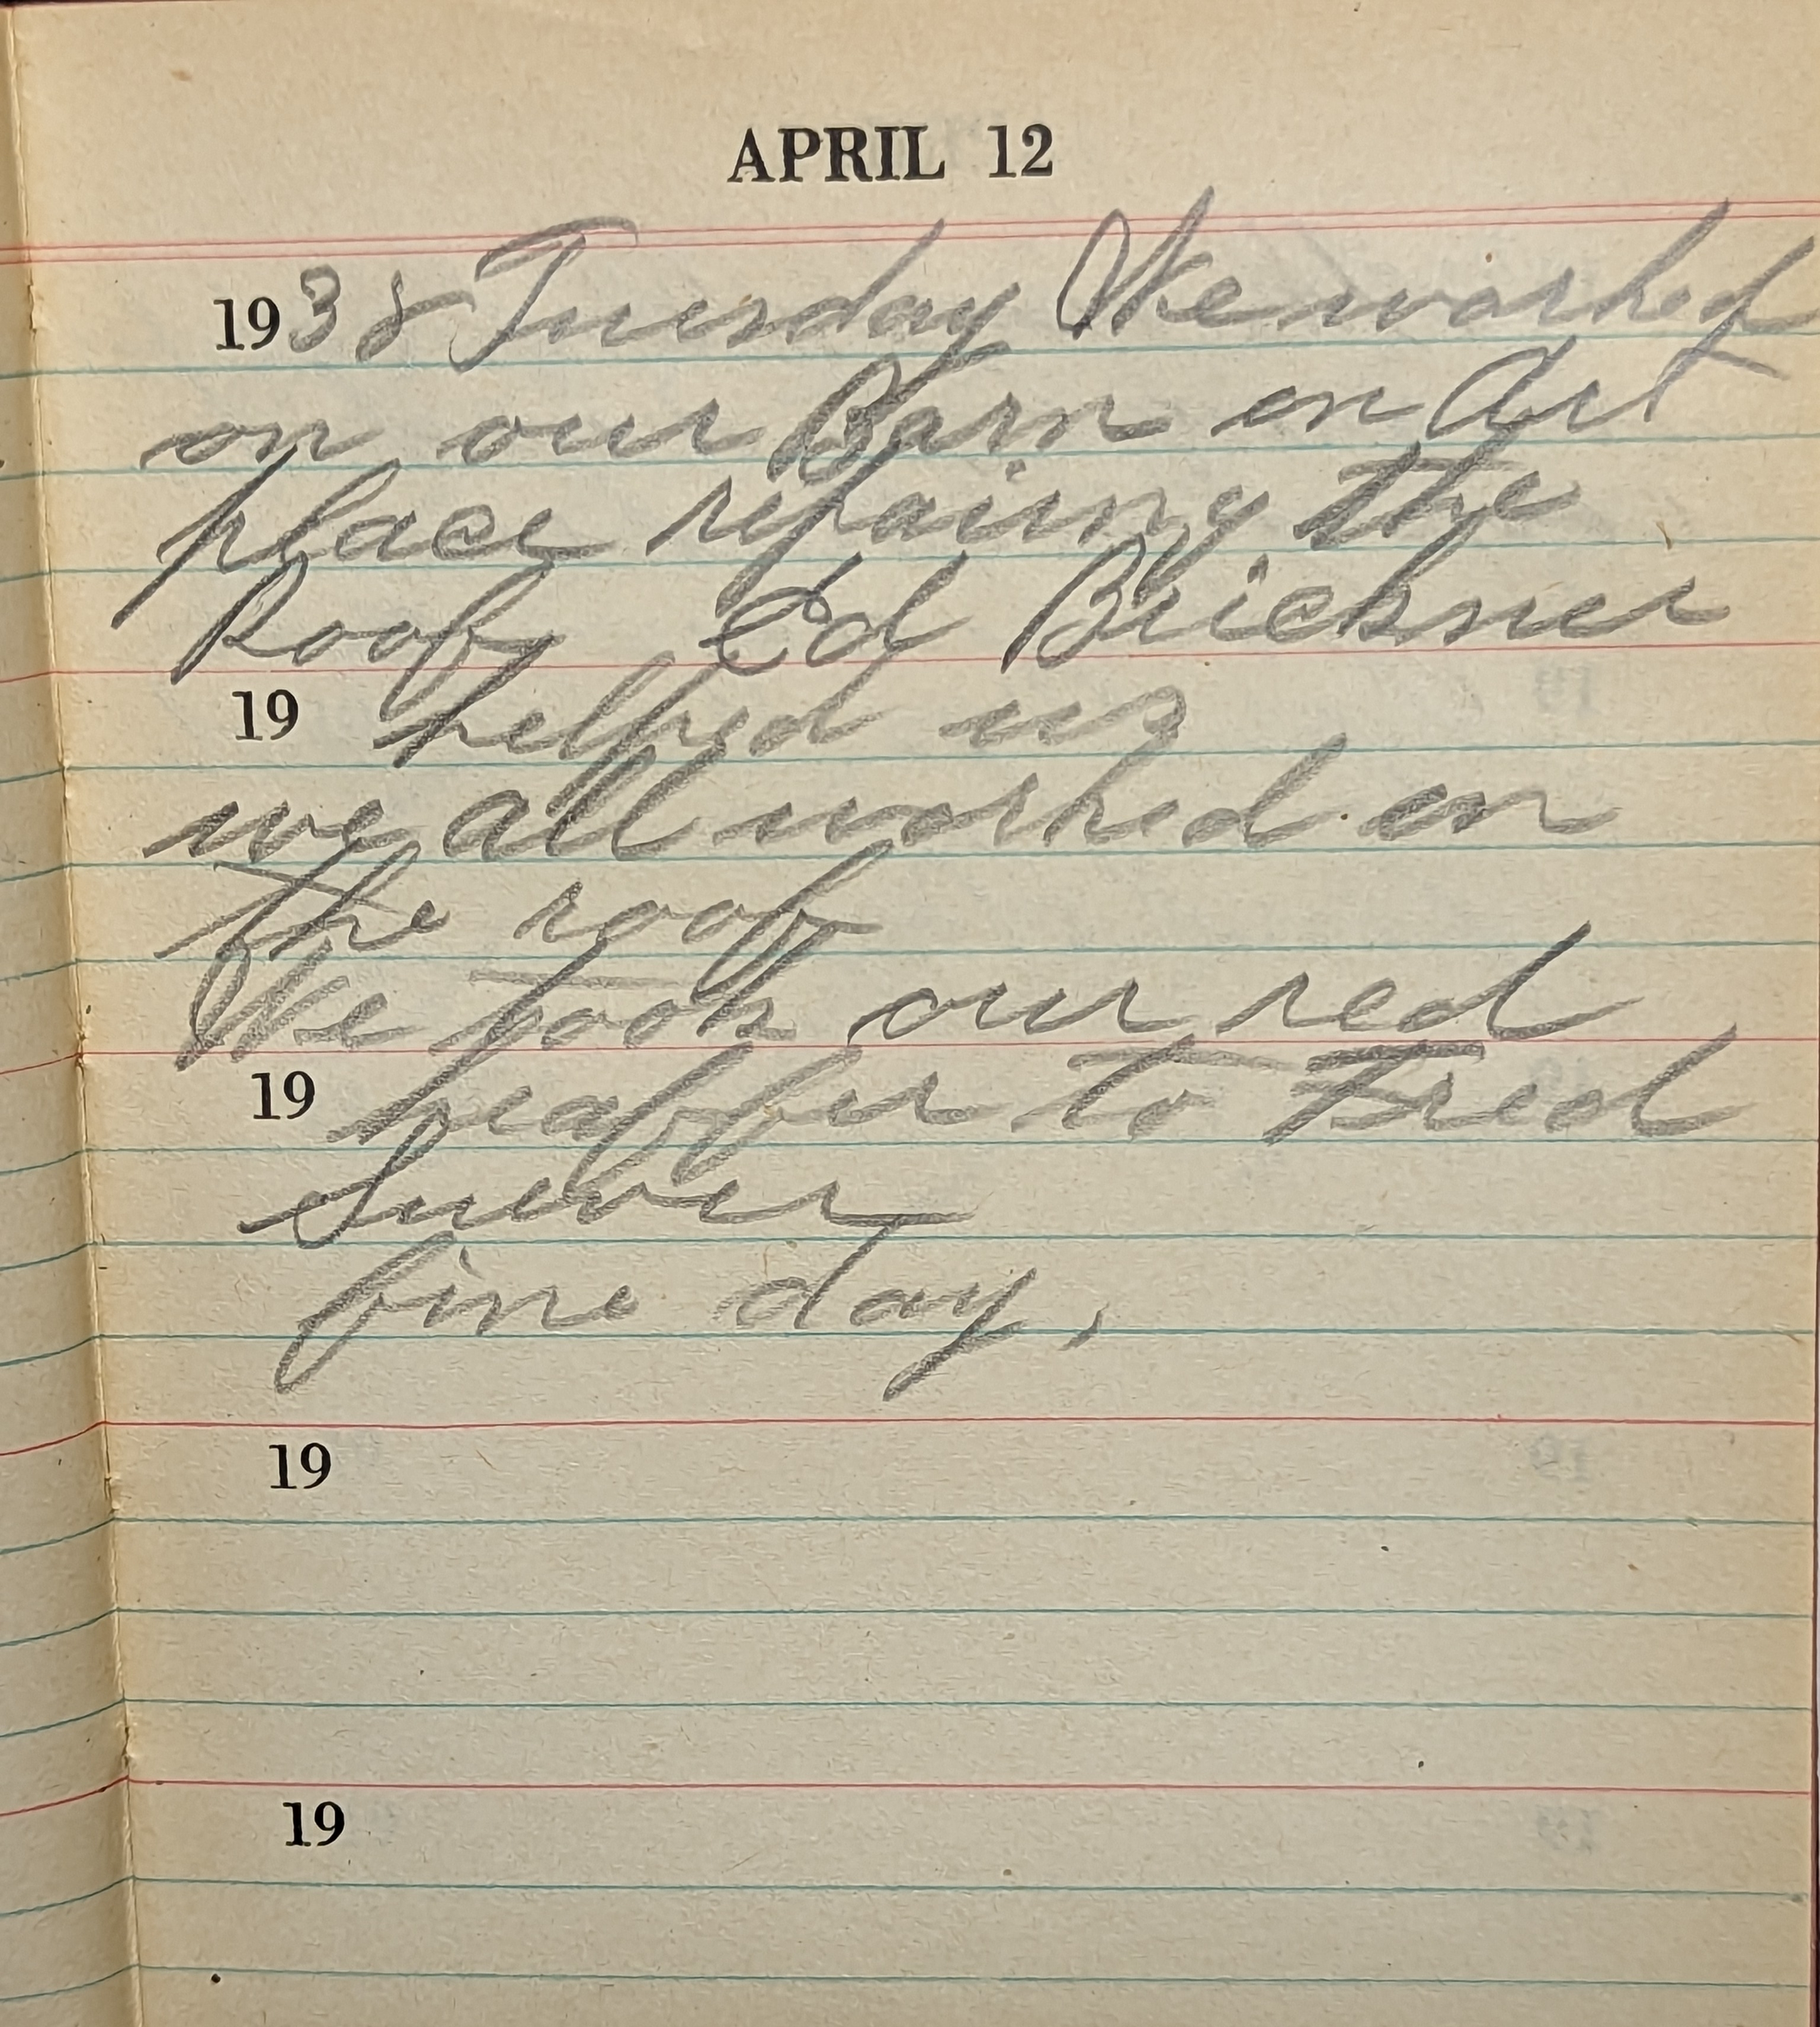 APRIL 12
1938 Tuesday We worked
on our Barn on Art
place repairing the
Roof Ed Brickner
19 helped us
we all worked on
the roof
We took our red
19 heaffer to Fred
fine day,
19
19